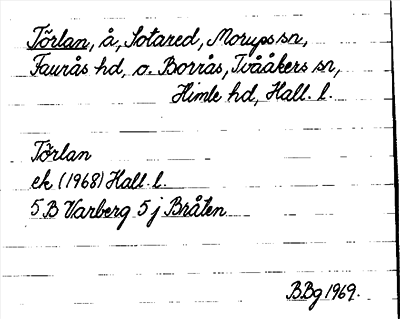 Törlan, å, Sotared, Morups sn,
Faurås hd, o. Borrås, Tvååkers sn,
Himle hd, Hall. l.
Törlan
ek (1968) Hall. l.
5 B Varberg 5 j Bråten
B.Bg 1969.